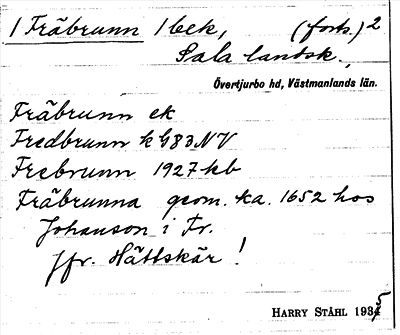 1 Fräbrunn 1 bek, (forts.) 2
Sala landsk.,
Övertjurbo hd, Västmanlands län.
Fräbrunn ek
Fredbrunn k G83NV
Frebrunn 1927 kb
Fräbrunna geom. ka. 1652 hos
Johanson i Fr.
jfr. Hättskär!
HARRY STÅHL 1935